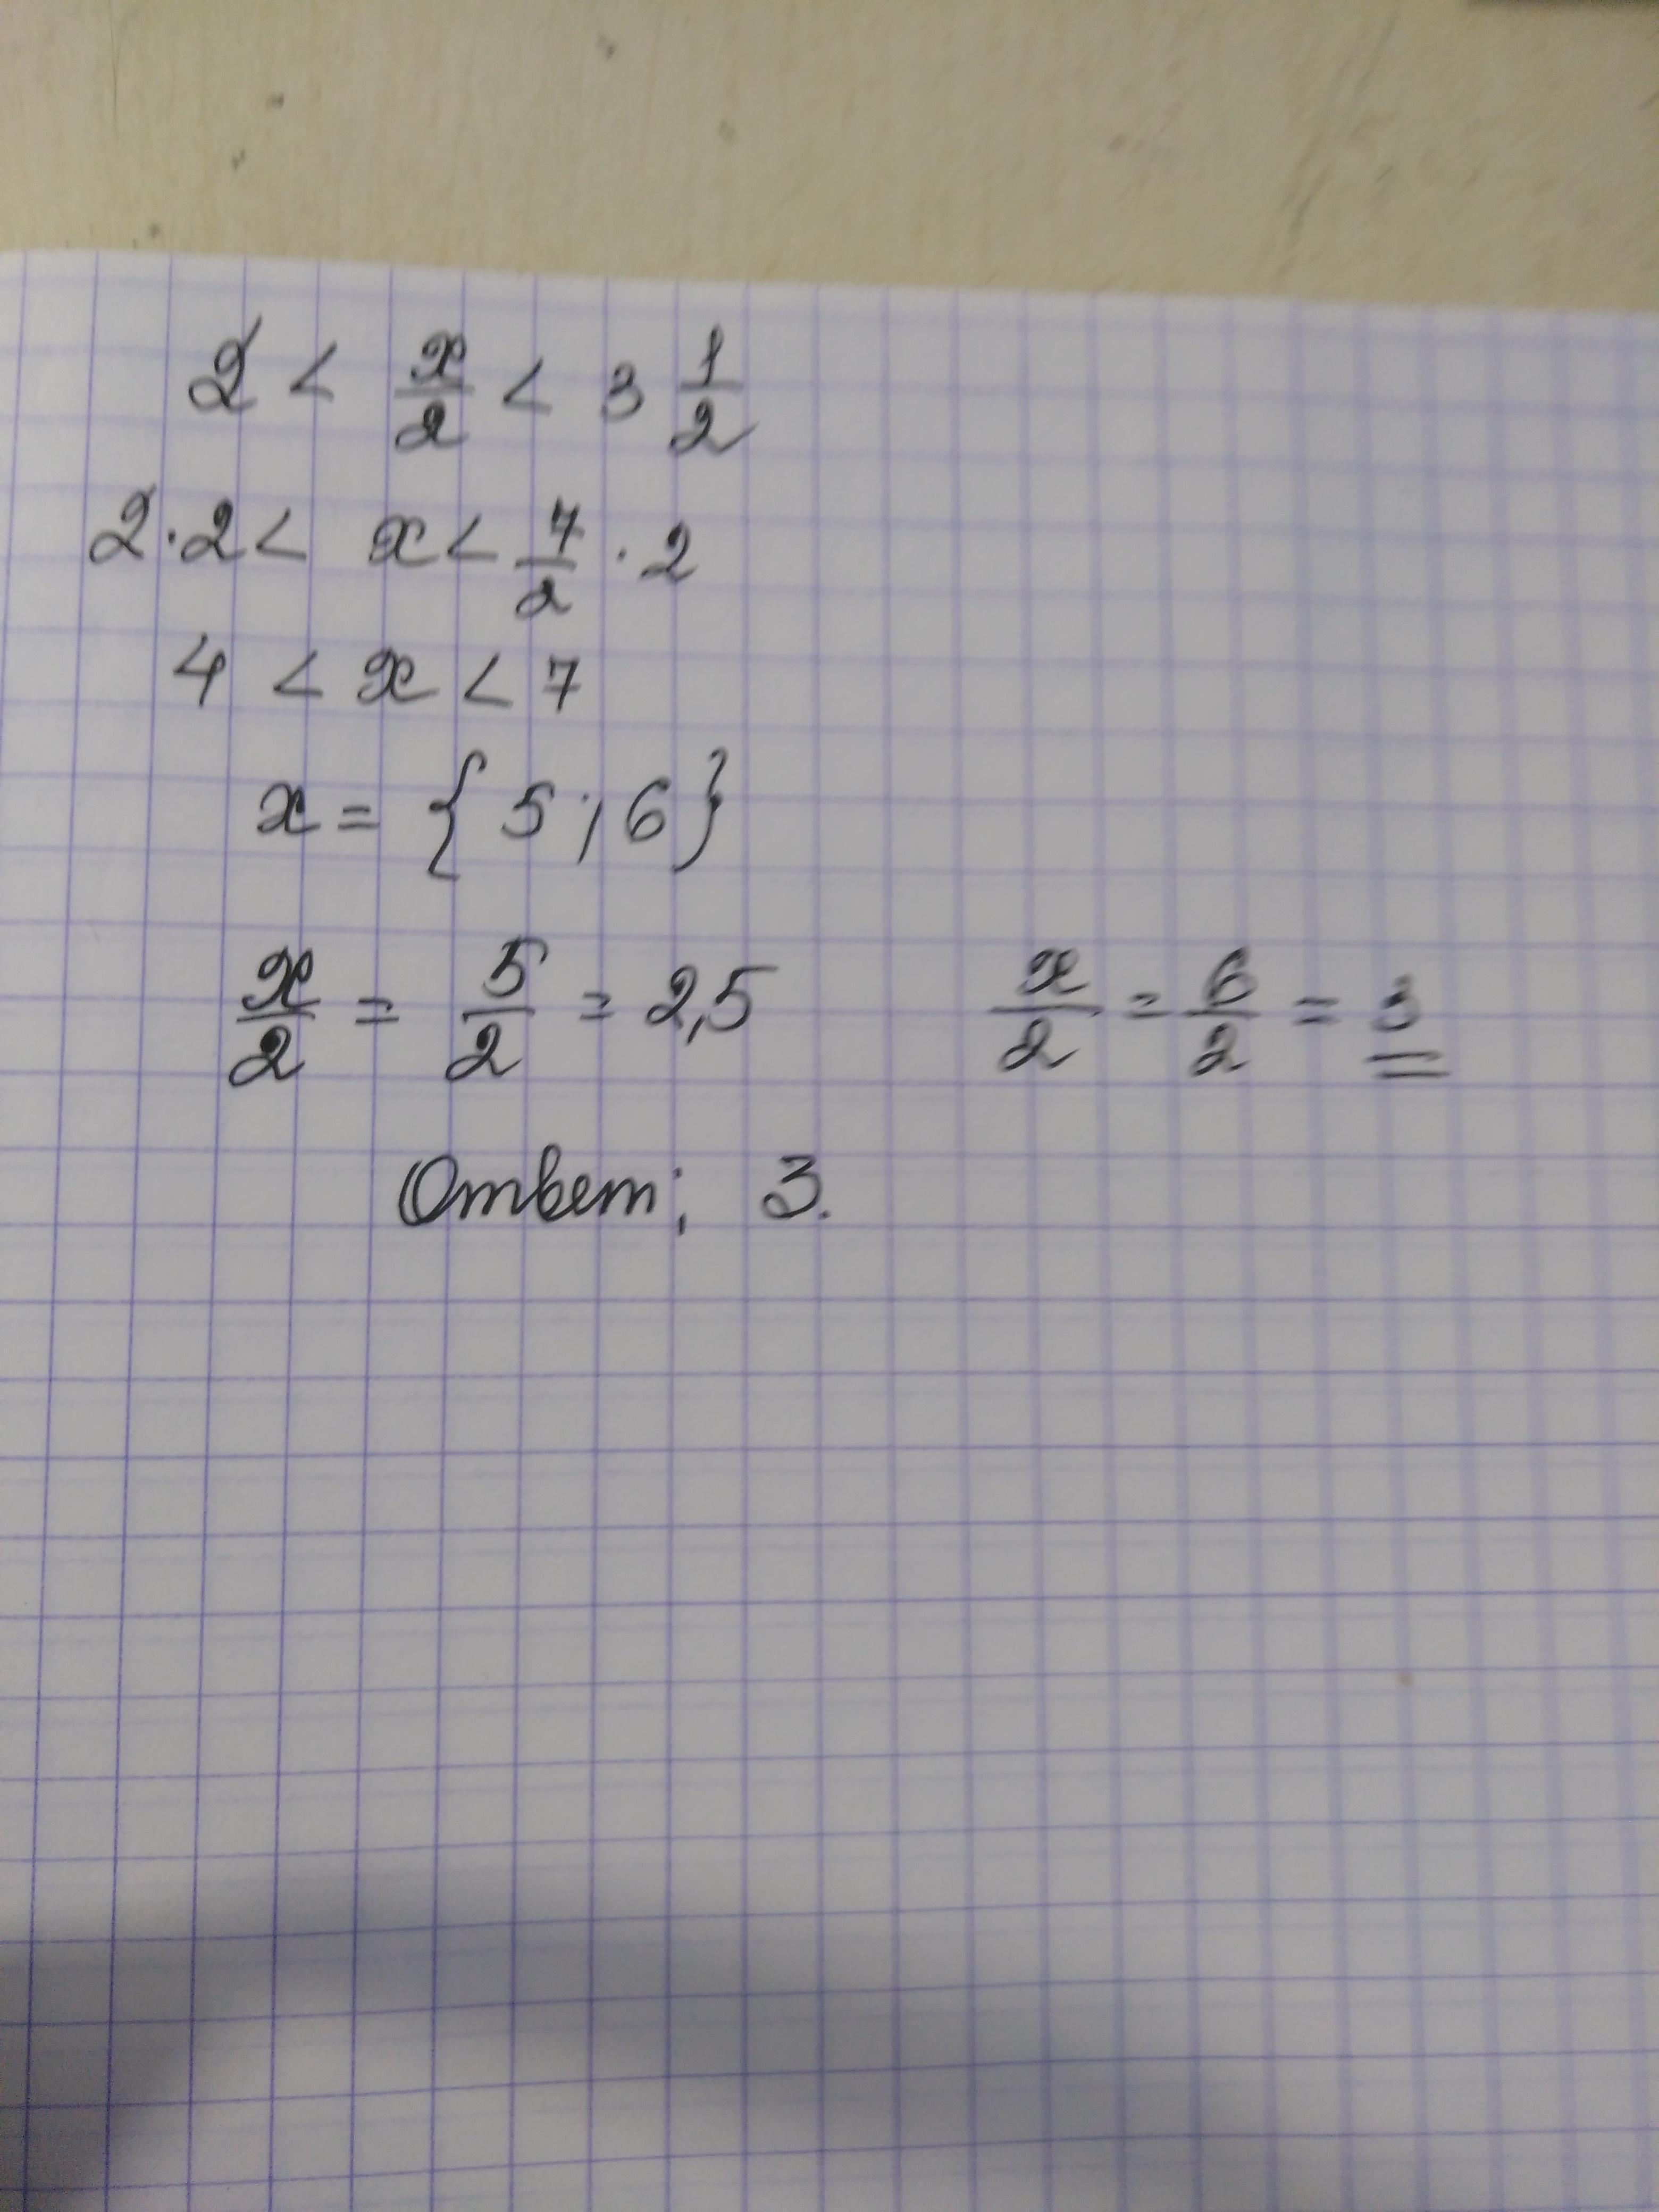 2 < x/2 < 3 1/2
2·2 < x < 7/2 · 2
4 < x < 7
x = { 5 ; 6 }
x/2 = 5/2 = 2,5 x/2 = 6/2 = 3
Ответ; 3.